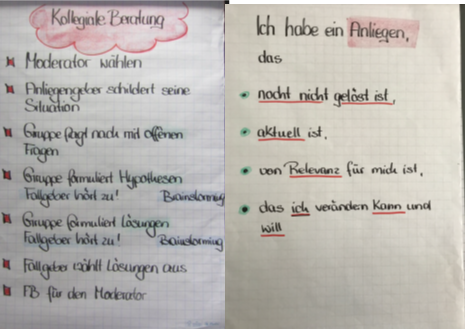 Kollegiale Beratung
Moderator wählen
Anliegengeber schildert seine
Situation
Gruppe fragt nach mit offenen
Fragen
Gruppe formuliert Hypothesen
Fallgeber hört zu! Brainstorming
Gruppe formuliert Lösungen
Fallgeber hört zu! Brainstorming
Fallgeber wählt Lösungen aus
FB für den Moderator
Ich habe ein Anliegen,
das
nocht nicht gelöst ist,
aktuell ist,
von Relevanz für mich ist,
das ich veränden kann und
will